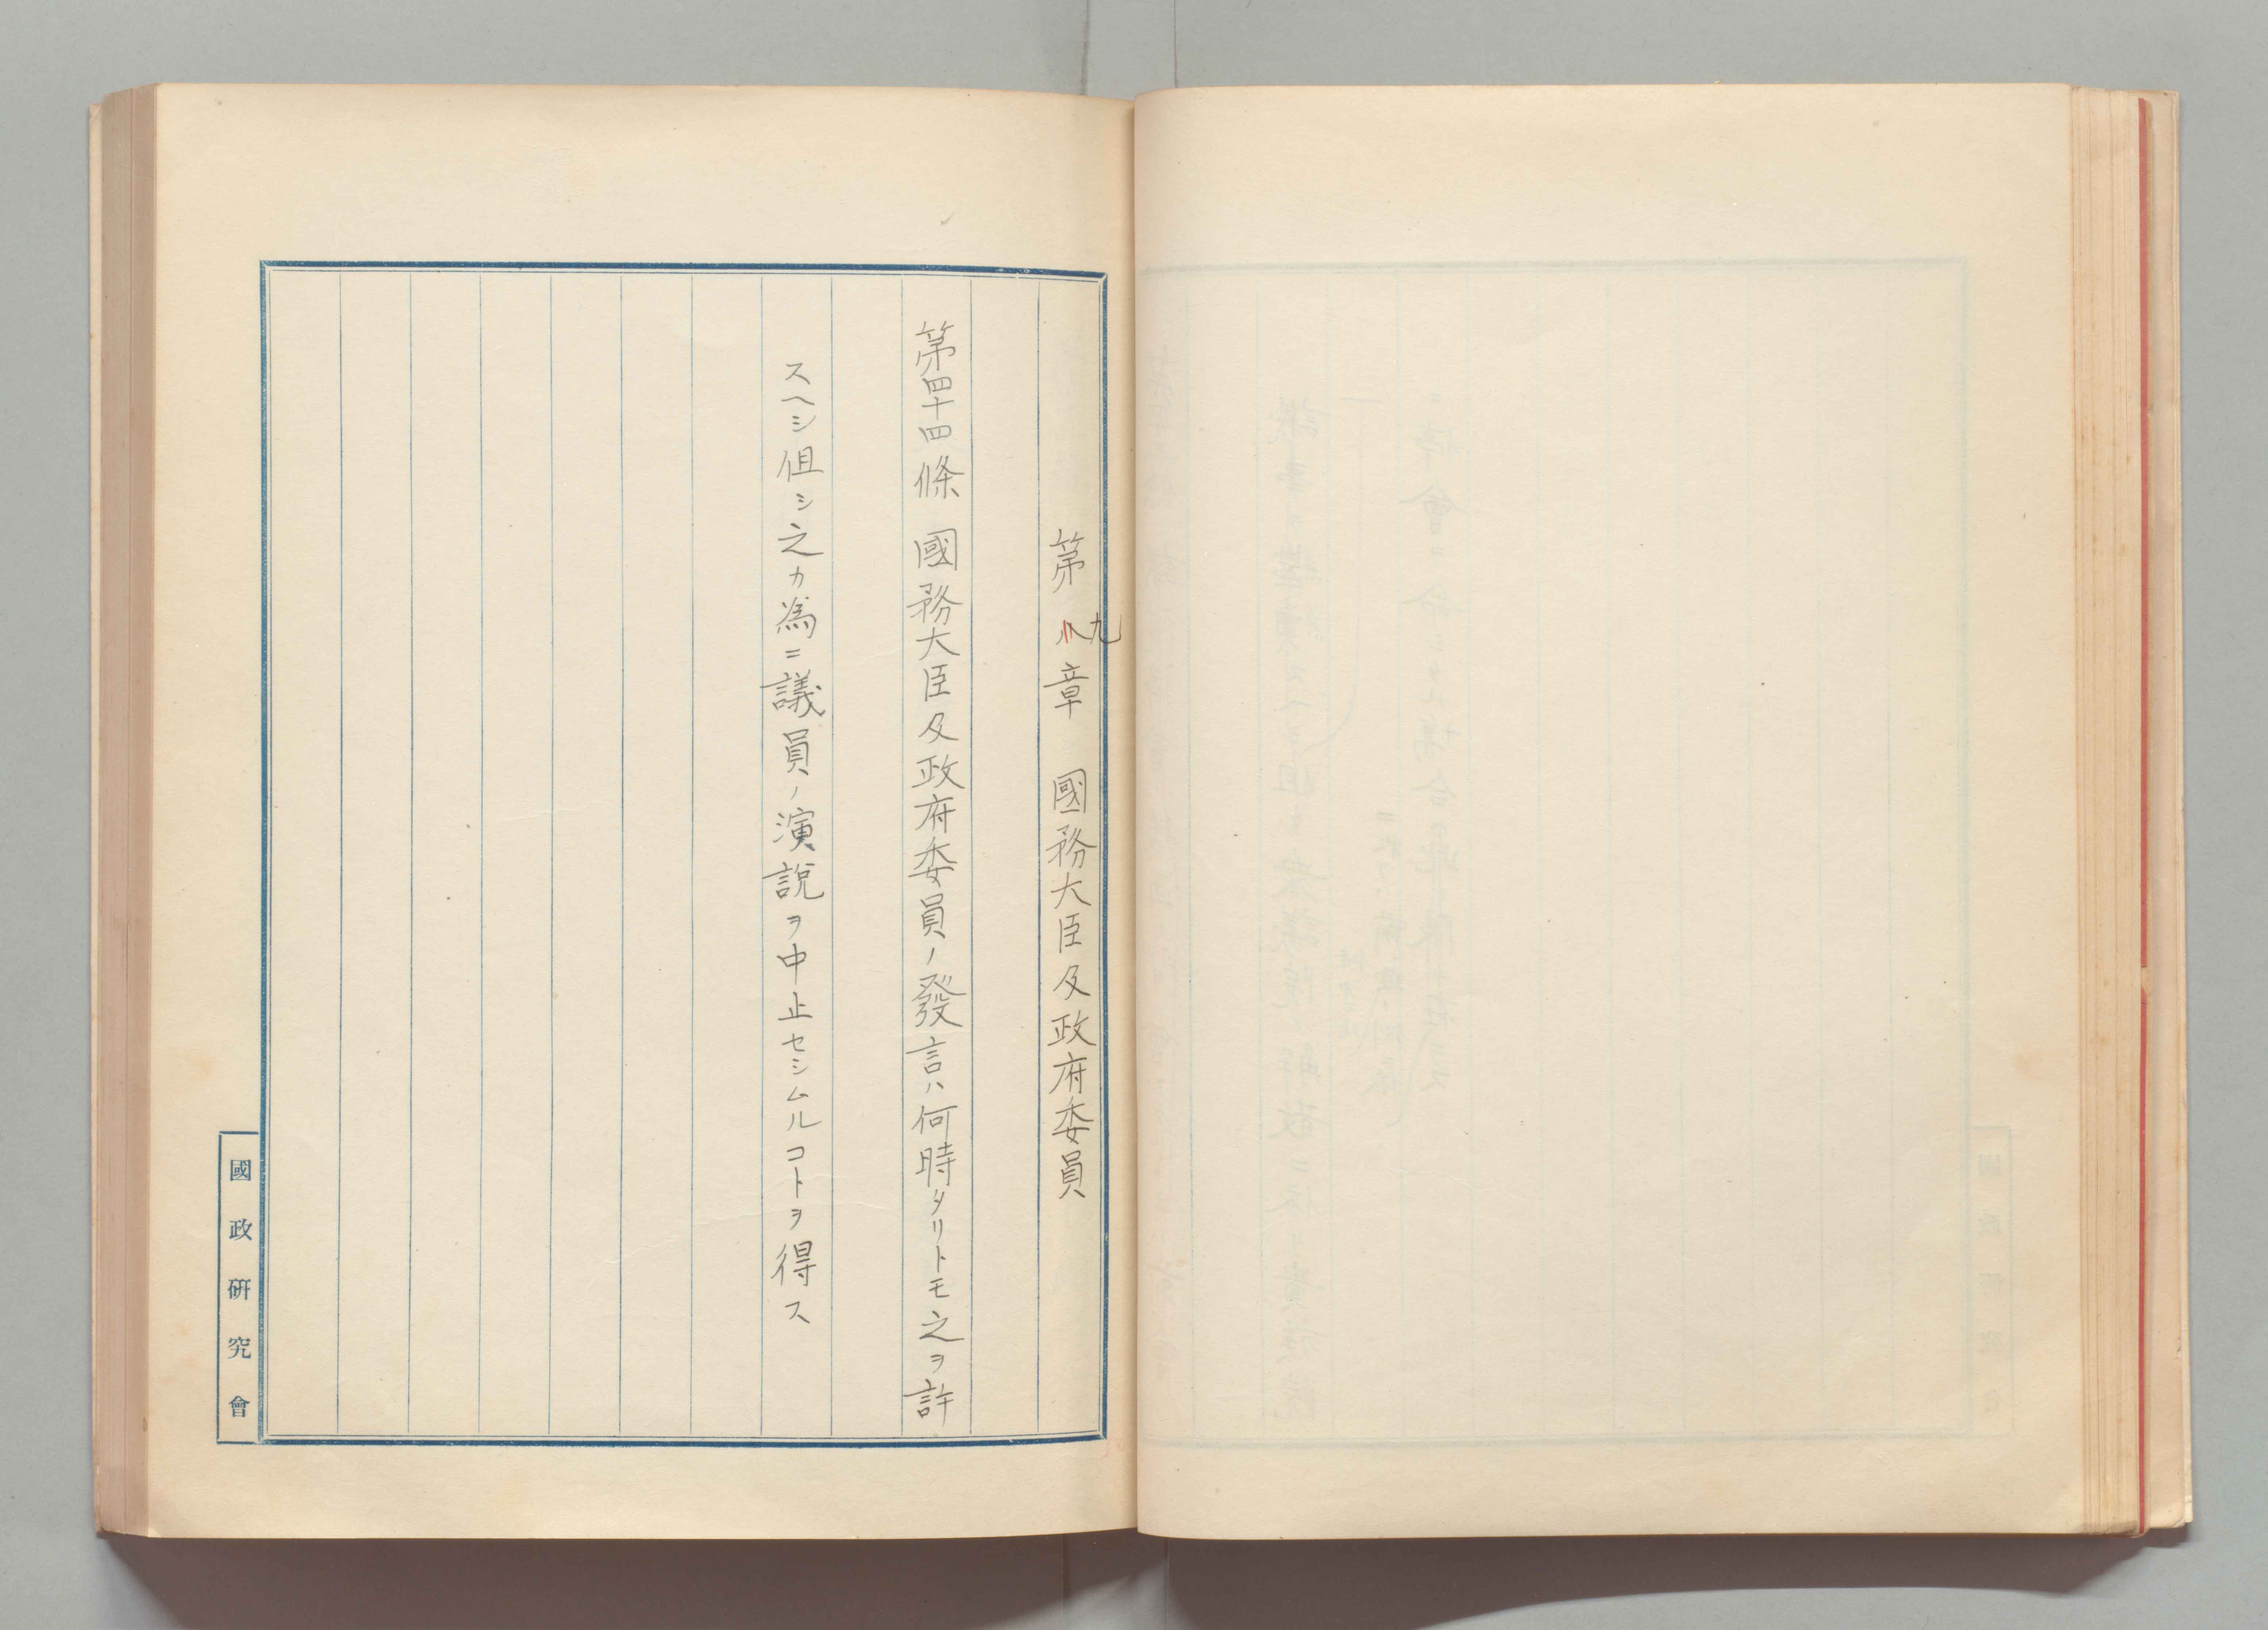 第九章 國務大臣及政府委員
第四十四條 國務大臣及政府委員ノ發言ハ何時タリトモ之ヲ許
スヘシ但シ之カ為ニ議員ノ演說ヲ中止セシムルコトヲ得ス
國政研究會